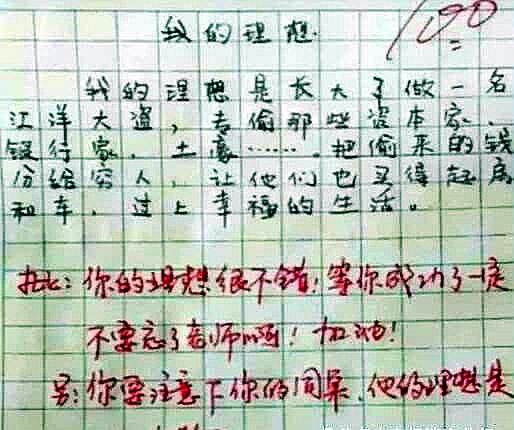 我的理想
100
我的理想是长大了做一名
江洋大盗,去偷那些资本家、
银行家、土豪……,把偷来的钱
份给穷人,让他们也买得起房
和车,过上幸福的生活。
批:你的理想很不错!等你成功了一定
不要忘了老师啊!加油!
另:你要注意下你的同桌,他的理想是